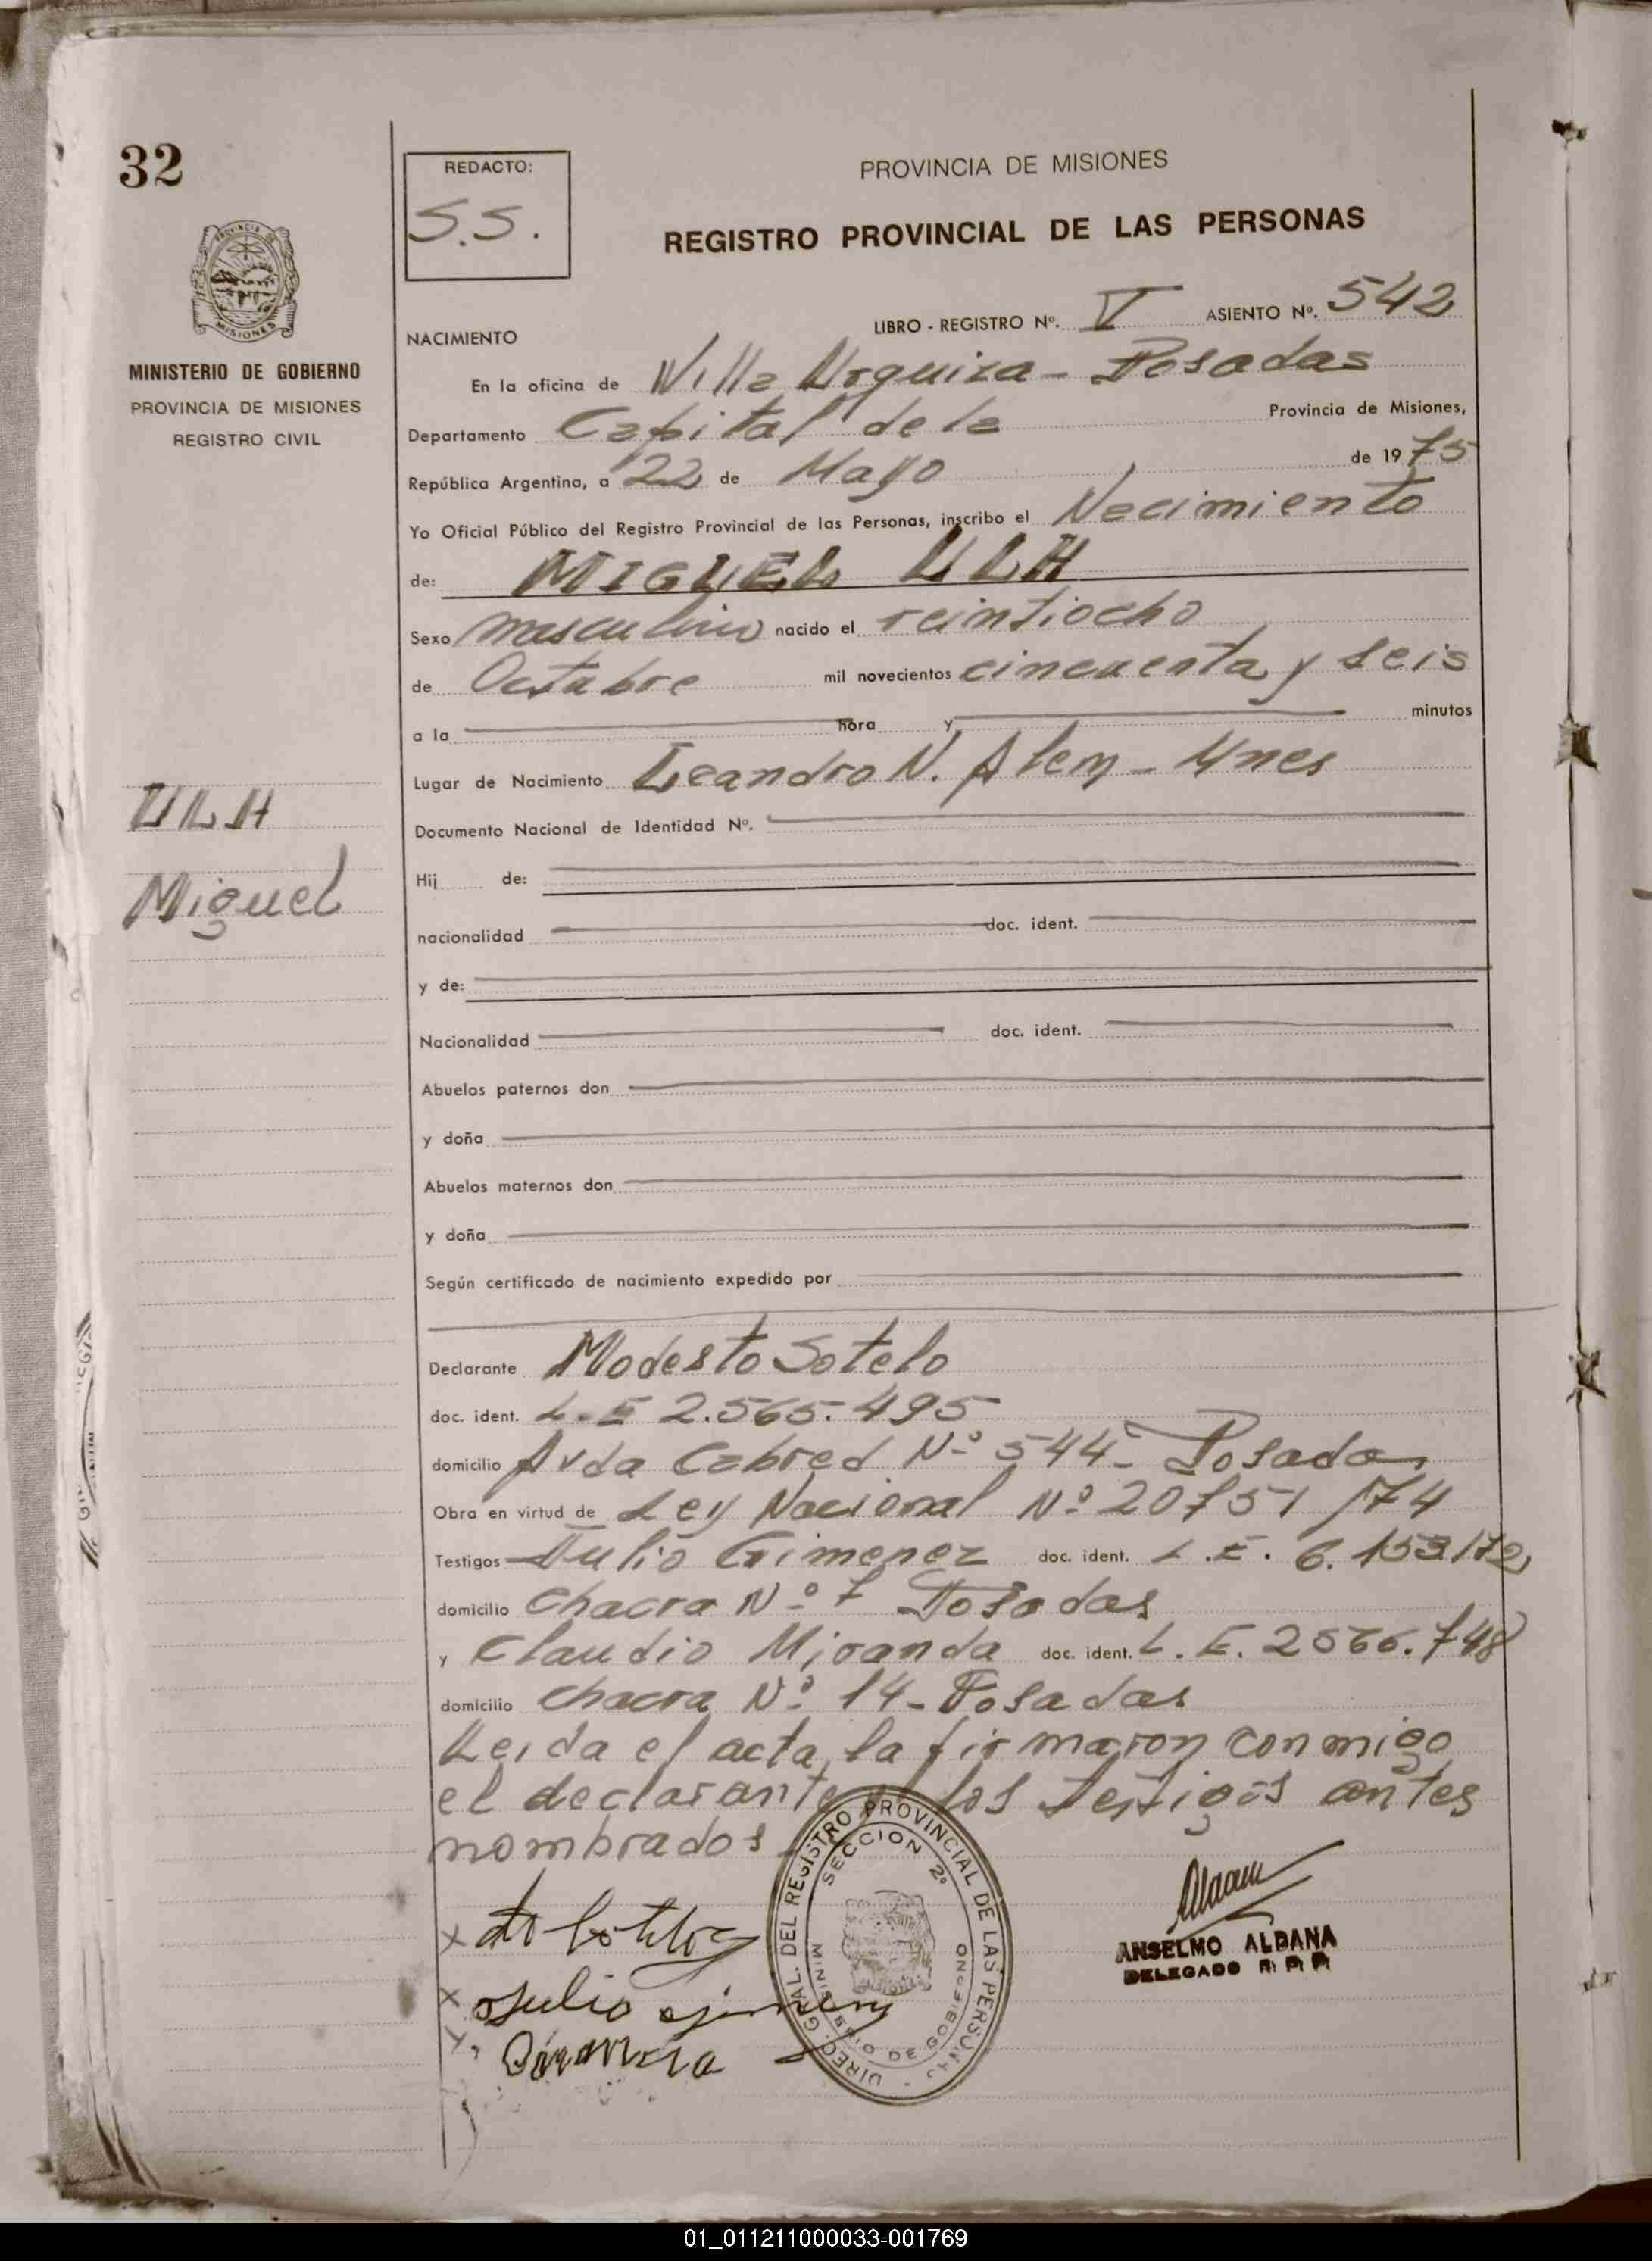 32
REDACTO:
S.S.
PROVINCIA DE MISIONES
REGISTRO PROVINCIAL DE LAS PERSONAS
PROVINCIA DE
MISIONES
MINISTERIO DE GOBIERNO
PROVINCIA DE MISIONES
REGISTRO CIVIL
NACIMIENTO
LIBRO - REGISTRO Nº. V ASIENTO Nº. 542
En la oficina de Villa Urquiza - Posadas
Departamento Capital de la Provincia de Misiones,
República Argentina, a 22 de Mayo de 1975
Yo Oficial Público del Registro Provincial de las Personas, inscribo el Nacimiento
de: MIGUEL ULH
Sexo masculino nacido el veintiocho
de Octubre mil novecientos cincuenta y seis
a la hora y minutos
Lugar de Nacimiento Leandro N. Alem - Mnes
ULH
Miguel
Documento Nacional de Identidad Nº.
Hij de:
nacionalidad doc. ident.
y de:
Nacionalidad doc. ident.
Abuelos paternos don
y doña
Abuelos maternos don
y doña
Según certificado de nacimiento expedido por
Declarante Modesto Sotelo
doc. ident. L.E 2.565.495
domicilio Avda Cabred Nº 544 - Posadas
Obra en virtud de Ley Nacional Nº 20751/74
Testigos Julio Gimenez doc. ident. L.E. 6.153172
domicilio Chacra Nº 7 Posadas
y Claudio Miranda doc. ident. L.E. 2566.748
domicilio Chacra Nº 14 - Posadas
Leida el acta, la firmaron conmigo
el declarante y los testigos antes
nombrados
DIREC. GRAL. DEL REGISTRO PROVINCIAL DE LAS PERSONAS
SECCION 2º
MINISTERIO DE GOBIERNO
ANSELMO ALDANA
DELEGADO R P P
x
x Julio
x
01_011211000033-001769